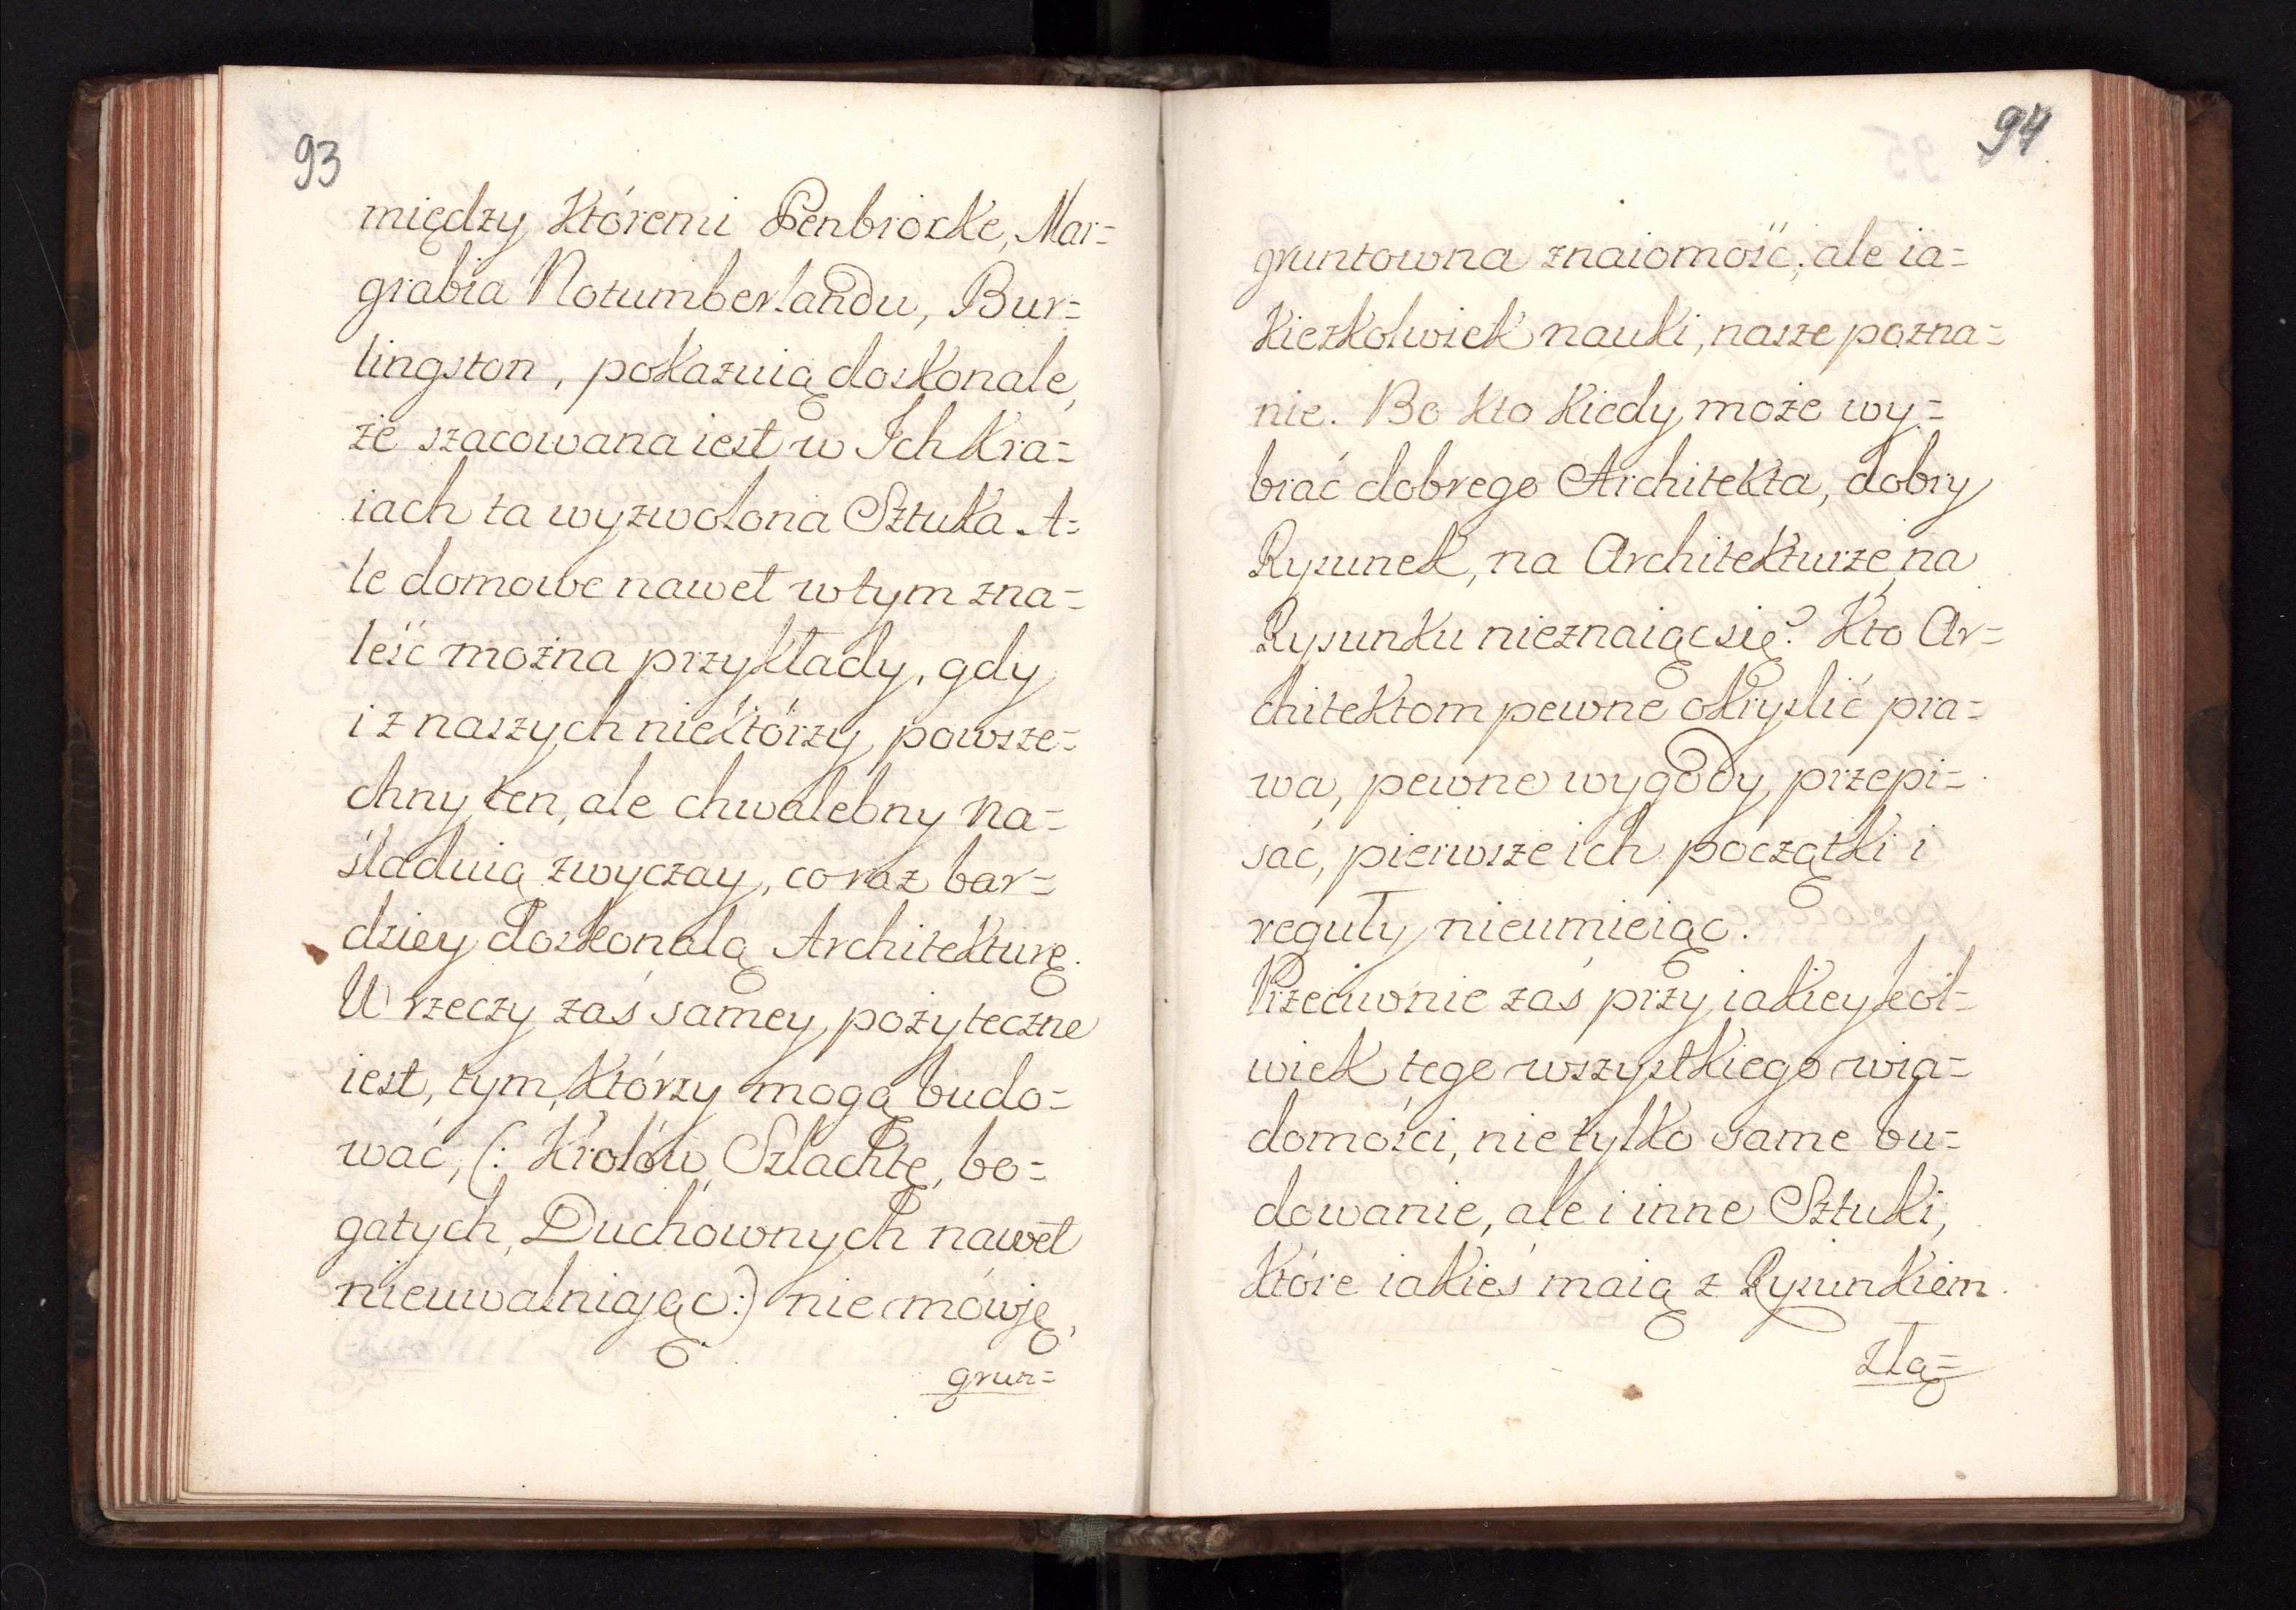 93
między któremi Penbrocke, Mar=
grabia Notumberlandu, Bur=
lingston, pokazuią doskonale,
że szacowana iest w Ich kra=
iach ta wyzwolona Sztuka A=
le domowe nawet w tym zna=
leść można przykłady, gdy
i z naszych niektórzy, powsze=
chny ten, ale chwalebny na=
śladuią zwyczay, coraz bar=
dziey doskonalą Architekturę.
W rzeczy zaś samey, pożyteczne
iest, tym, którzy mogą budo=
wać, (: Krolów, Szlachtę, bo=
gatych, Duchownych nawet
nieuwalniając :) nie mówię,
grun=
94
gruntowna znaiomość; ale ia=
kiezkolwiek nauki, nasze pozna=
nie. Bo kto kiedy może wy=
brać dobrego Architekta, dobry
Rysunek, na Architekturze, na
Rysunku nieznaiąc się? Kto Ar=
chitektom pewne okryślić pra=
wa, pewne wygody, przepi=
sać, pierwsze ich początki i
reguły, nieumieiąc.
Przeciwnie zaś przy iakieykol=
wiek tego wszystkiego wia=
domości, nietylko same bu=
dowanie, ale i inne Sztuki,
które iakieś maią z Rysunkiem
złą=